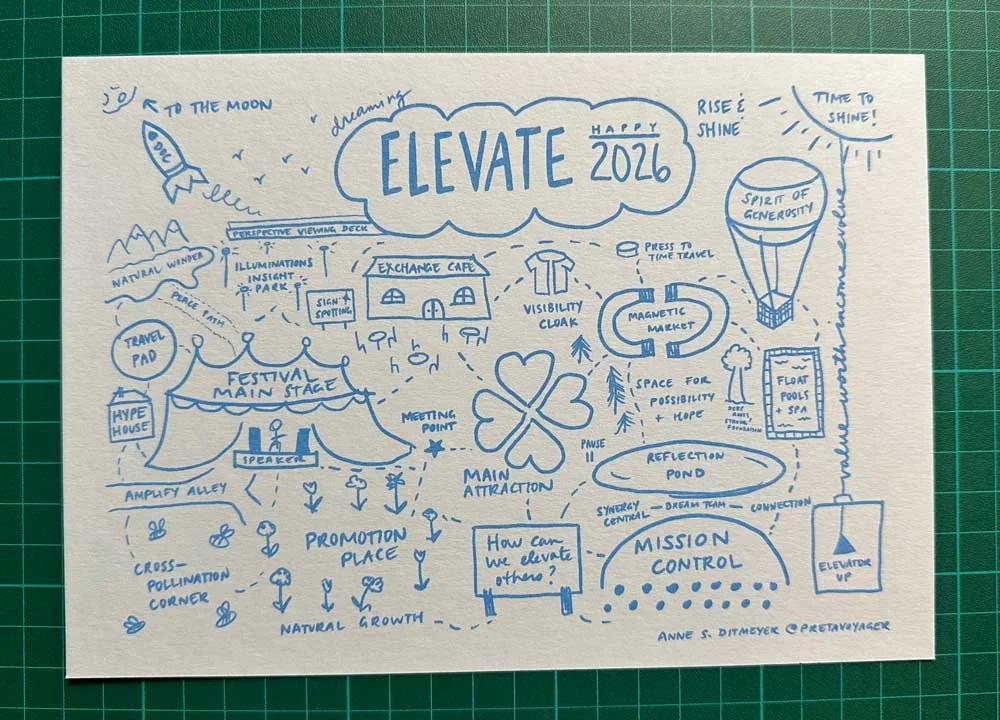 TO THE MOON
DDC
dreaming
ELEVATE
HAPPY
2026
RISE &
SHINE
TIME TO
SHINE!
SPIRIT OF
GENEROSITY
value worth income evolve
PERSPECTIVE VIEWING DECK
NATURAL WONDER
ILLUMINATIONS
INSIGHT
PARK
PEACE PATH
SIGN +
SPOTTING
EXCHANGE CAFE
VISIBILITY
CLOAK
PRESS TO
TIME TRAVEL
MAGNETIC
MARKET
TRAVEL
PAD
HYPE
HOUSE
FESTIVAL
MAIN STAGE
SPEAKER
MEETING
POINT
MAIN
ATTRACTION
SPACE FOR
POSSIBILITY
+ HOPE
DEEP
ROOTS,
STRONG
FOUNDATION
FLOAT
POOLS
+ SPA
PAUSE
REFLECTION
POND
AMPLIFY ALLEY
SYNERGY
CENTRAL
DREAM TEAM
CONNECTION
PROMOTION
PLACE
How can
we elevate
others?
MISSION
CONTROL
ELEVATOR
UP
CROSS-
POLLINATION
CORNER
NATURAL GROWTH
ANNE S. DITMEYER @PRETAVOYAGER